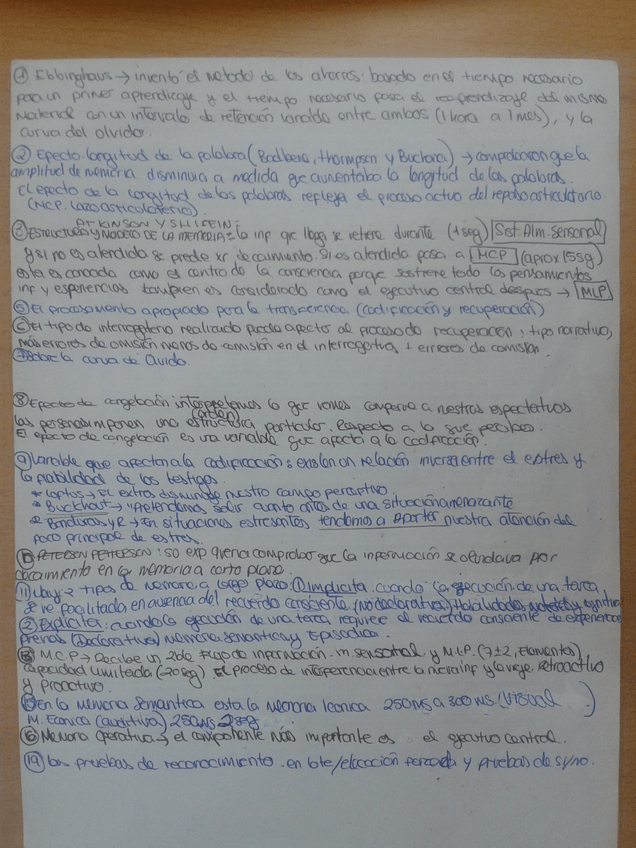 ① Ebbinghaus → inventó el método de los ahorros: basado en el tiempo necesario
para un primer aprendizaje y el tiempo necesario para el reaprendizaje del mismo
material con un intervalo de retención variable entre ambos (1 hora a 1 mes), y la
curva del olvido.
② Efecto longitud de la palabra (Baddeley, Thompson y Buchana) → comprobaron que la
amplitud de memoria disminuía a medida que aumentaba la longitud de las palabras.
El efecto de la longitud de las palabras refleja el proceso activo del repaso articulatorio
(MCP. Lazo articulatorio)
ATKINSON Y SHIFFIN:
③ ESTRUCTURA Y MODELO DE LA MEMORIA = la inp que llega se retiene durante (1 seg) Sist. Alm. Sensorial
y si no es atendida se pierde xr decaimiento. Si es atendida pasa a MCP (aprox 15sg)
esta es conocida como el centro de la consciencia porque sostiene todo los pensamientos
inf y experiencias tambien es considerado como el ejecutivo central después → MLP
⑤ El procesamiento apropiado para la transferencia (codificación y recuperación)
⑥ El tipo de interrogatorio realizado puede afectar al proceso de recuperación; tipo narrativo,
más errores de omisión menos de comisión en el interrogativo + errores de comisión.
⑦ Sobre la curva de olvido.
⑧ Efecto de congelación interpretamos lo que vemos conforme a nuestras expectativas
(orden)
las personas imponen una estructura particular. Respecto a lo que perciben.
El efecto de congelación es una variable que afecta a la codificación.
⑨ Variable que afectan a la codificación: existen una relación inversa entre el estrés y
la fiabilidad de los testigos.
* Loftus → El estrés disminuye nuestro campo perceptivo
* Buckhout → Pretendemos salir cuanto antes de una situación amenazante
→ En situaciones estresantes tendemos a apartar nuestra atención del
foco principal de estrés.
PETERSON PETERSON: so exp quería comprobar que la información se olvidaba por
decaimiento en la memoria a corto plazo.
⑪ Hay 2 tipos de memoria a largo plazo ① implícita: cuando la ejecución de una tarea
se ve facilitada en ausencia del recuerdo consciente (no declarativa) Habilidades motoras y cognitivas
② Explícita: cuando la ejecución de una tarea requiere el recuerdo consciente de experiencias
previas (Declarativa) Memoria semántica y Episódica.
M.C.P → Recibe un doble flujo de información. m. sensorial y M.L.P. (7±2, Elementos)
capacidad limitada El proceso de interferencia entre la nueva inf y la vieja, retroactivo
y proactivo.
En la Memoria Semantica esta la Memoria Iconica 250MS a 300 MS. (Visual)
M. Ecoica (auditiva) 250MS
⑯ Memoria operativa → el componente más importante es el ejecutivo central.
⑲ Las pruebas de reconocimiento. en lote/elección forzada y pruebas de sí/no.